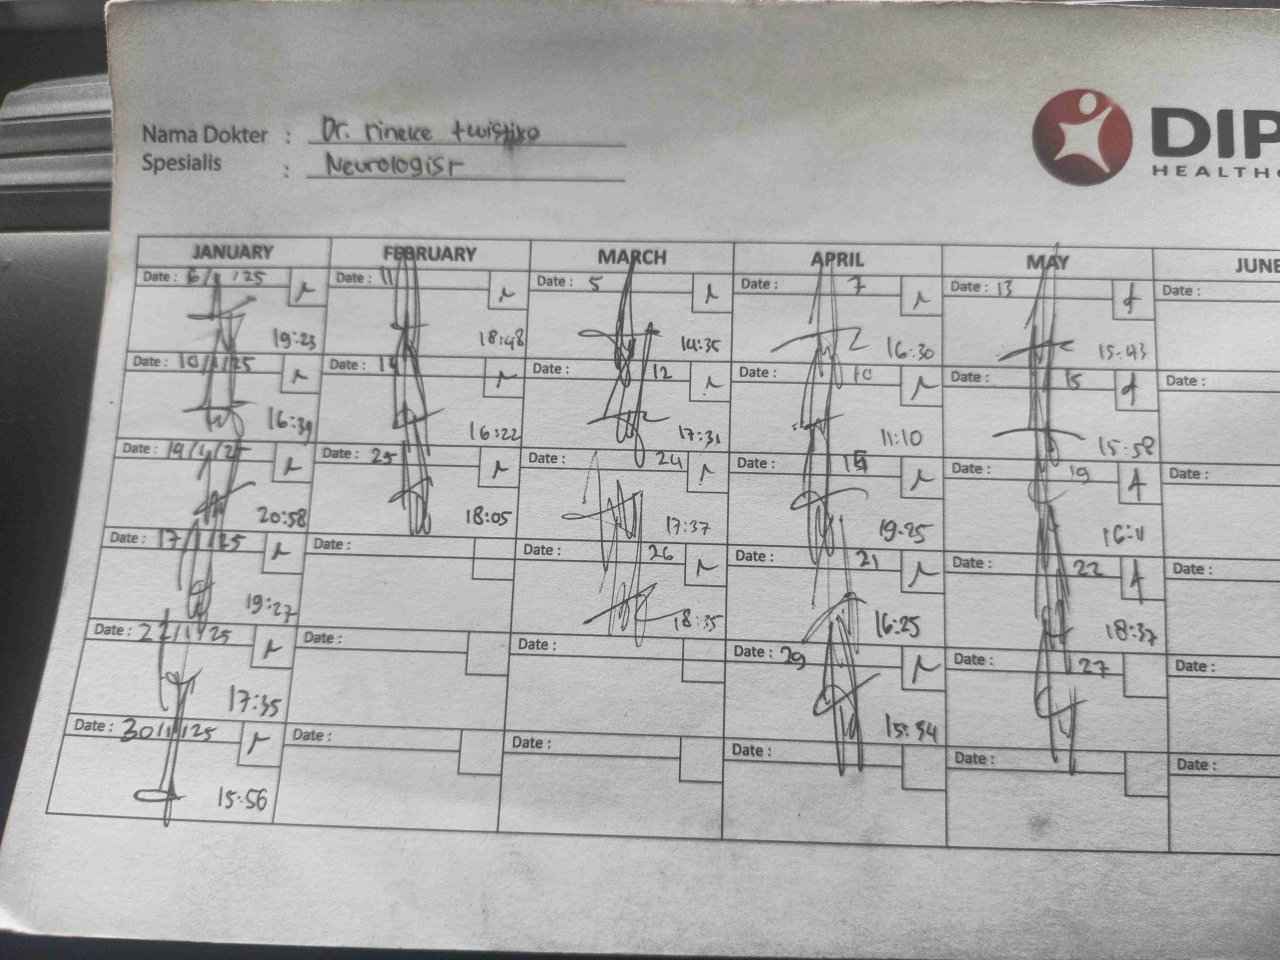 Nama Dokter : Dr. rineke twistixo
Spesialis : Neurologist
DIP
HEALTHC
JANUARY FEBRUARY MARCH APRIL MAY JUNE
Date : 6/1/25 Date : 11 Date : 5 Date : 7 Date : 13 Date :
19:23 18:48 14:35 16:30 15:43
Date : 10/1/25 Date : 14 Date : 12 Date : 10 Date : 15 Date :
16:39 16:22 17:31 11:10 15:58
Date : 14/1/25 Date : 25 Date : 24 Date : Date : 19 Date :
20:58 18:05 17:37 19.25 16:11
Date : 17/1/25 Date : Date : 26 Date : 21 Date : 22 Date :
19:27 18:35 16:25 18:37
Date : 22/1/25 Date : Date : Date : 29 Date : 27 Date :
17:35 15:54
Date : 30/1/25 Date : Date : Date : Date : Date :
15:56